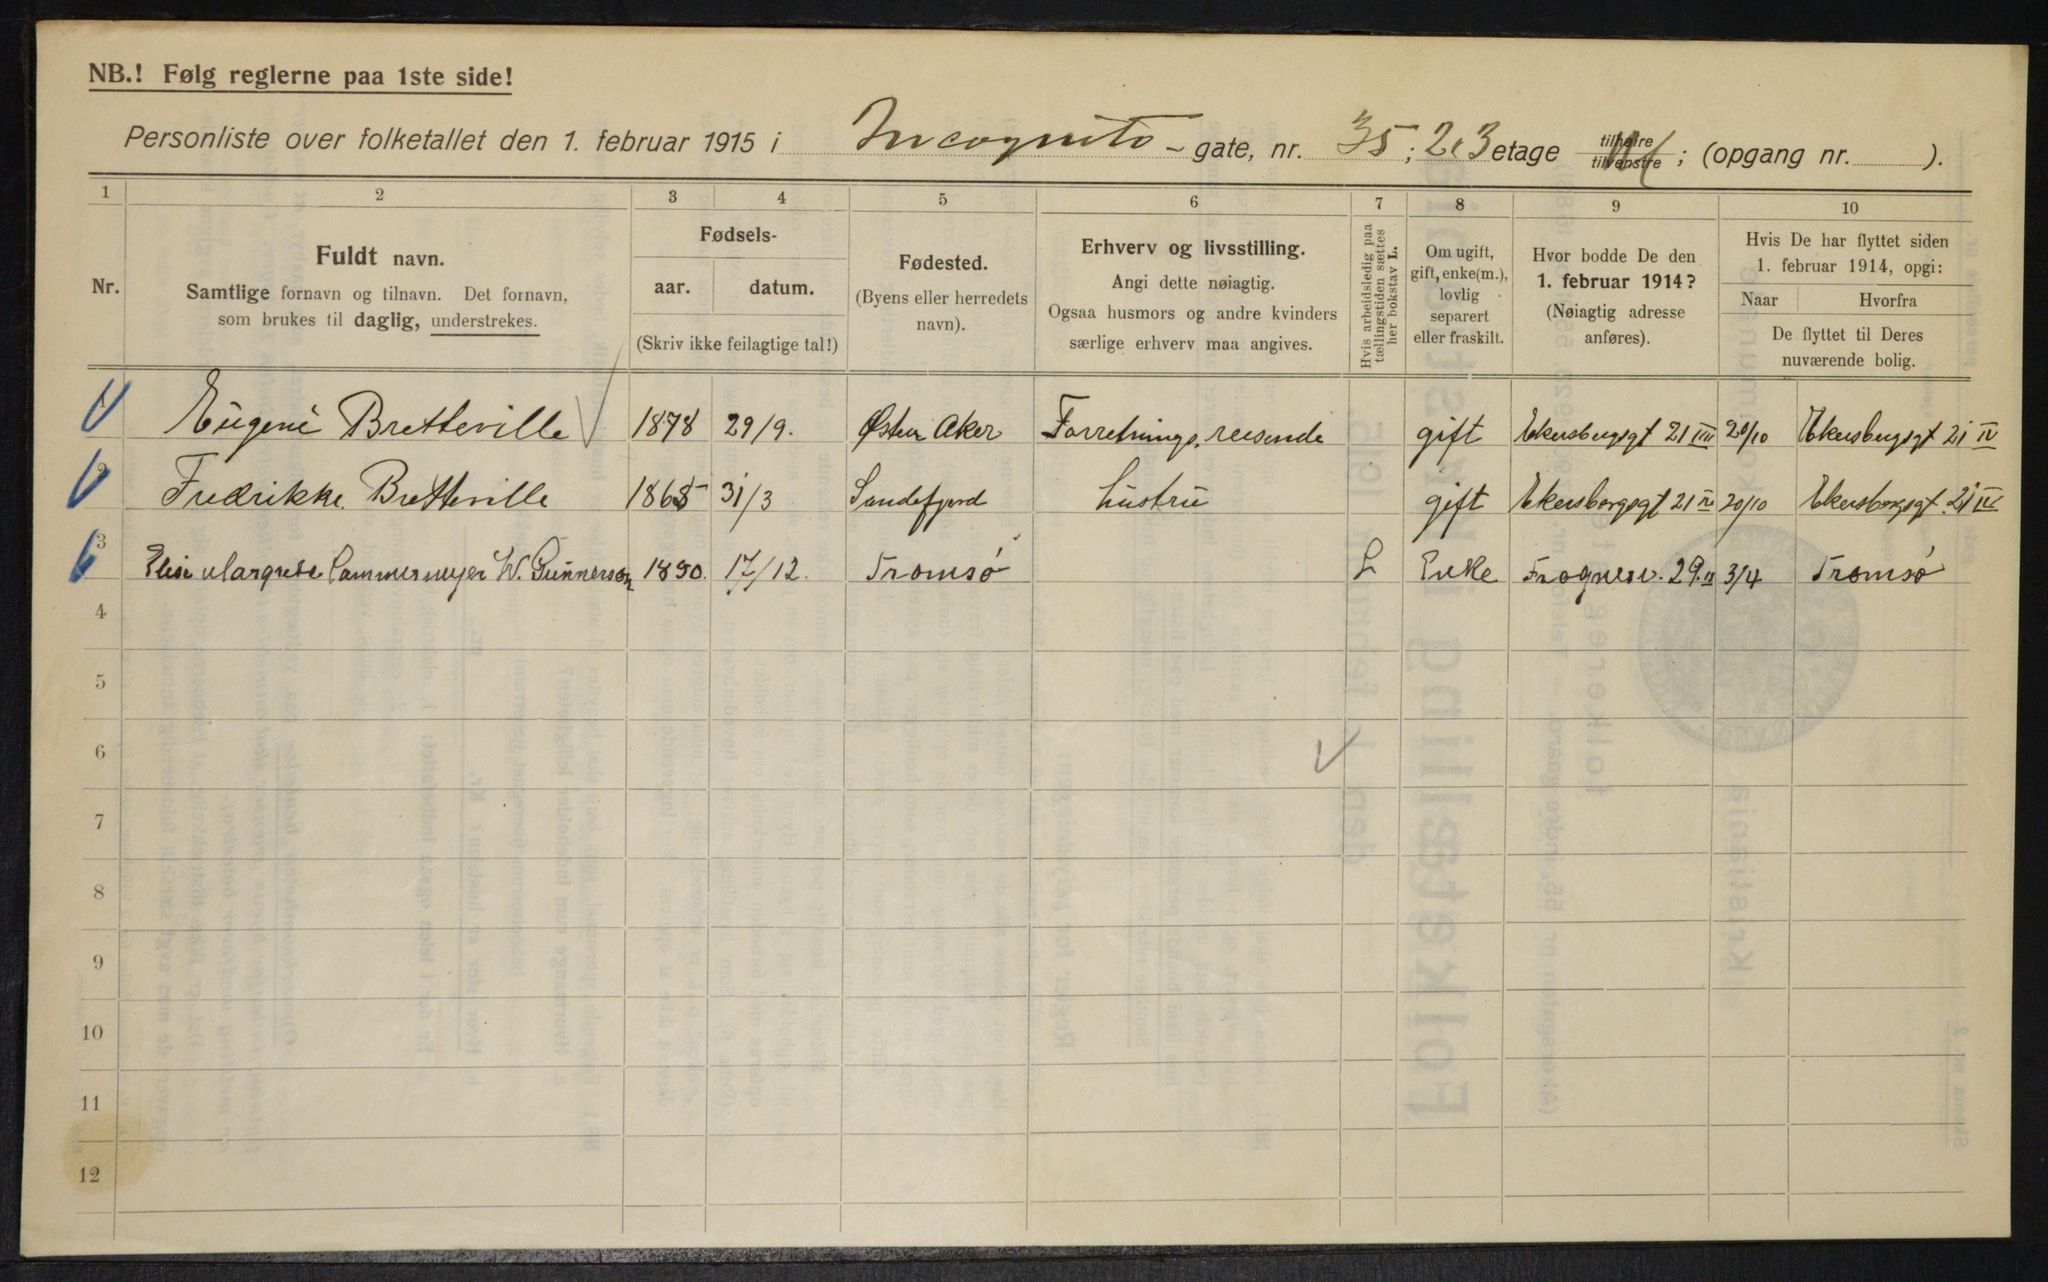 NB.! Følg reglerne paa 1ste side!
Personliste over folketallet den 1. februar 1915 i Incognito - gate, nr. 35; 2, 3 etage tilhøire tilvenstre; (opgang nr. ).
1 2 3 4 5 6 7 8 9 10
Nr.
Fuldt navn.
Samtlige fornavn og tilnavn. Det fornavn,
som brukes til daglig, understrekes.
Fødsels-
aar. datum.
(Skriv ikke feilagtige tal!)
Fødested.
(Byens eller herredets
navn).
Erhverv og livsstilling.
Angi dette nøiagtig.
Ogsaa husmors og andre kvinders
særlige erhverv maa angives.
Hvis arbeidsledig paa
tællingstiden sættes
her bokstav L.
Om ugift,
gift, enke(m.),
lovlig
separert
eller fraskilt.
Hvor bodde De den
1. februar 1914?
(Nøiagtig adresse
anføres).
Hvis De har flyttet siden
1. februar 1914, opgi:
Naar Hvorfra
De flyttet til Deres
nuværende bolig.
1 Eugene Bretteville 1878 29/9. Østre Aker Forretnings, reisende gift Ekersbergsgt 21 20/10 Ekersbergsgt 21 IV
2 Fredrikke Bretteville 1865 31/3 Sandefjord hustru gift Ekersbergsgt 21 IV 20/10 Ekersbergsgt. 21 IV
3 Elise Margrete Cammermeyer W. Gunnerson 1890. 17/12. Tromsø L Enke Frognerv. 29. II 3/4 Tromsø
4
5
6
7
8
9
10
11
12